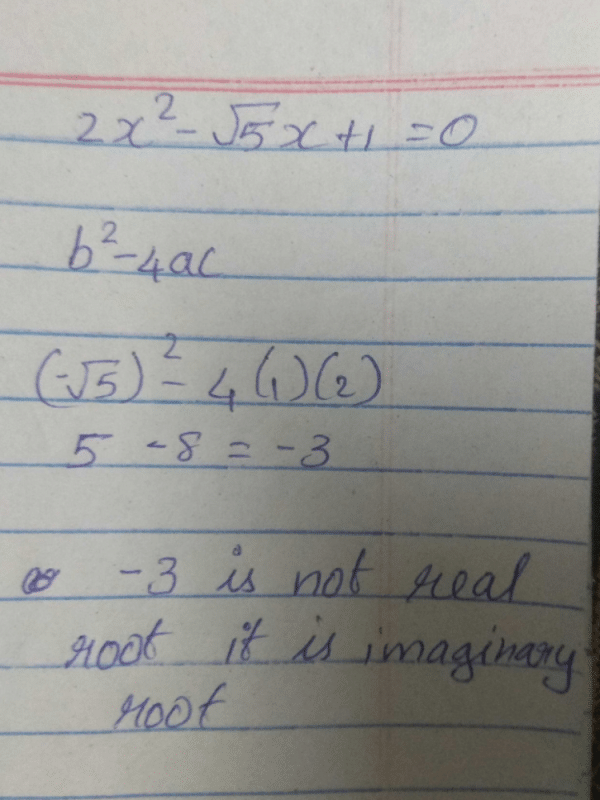 2x² - √5x + 1 = 0
b² - 4ac
(-√5)² - 4(1)(2)
5 - 8 = -3
-3 is not real
root it is imaginary
root